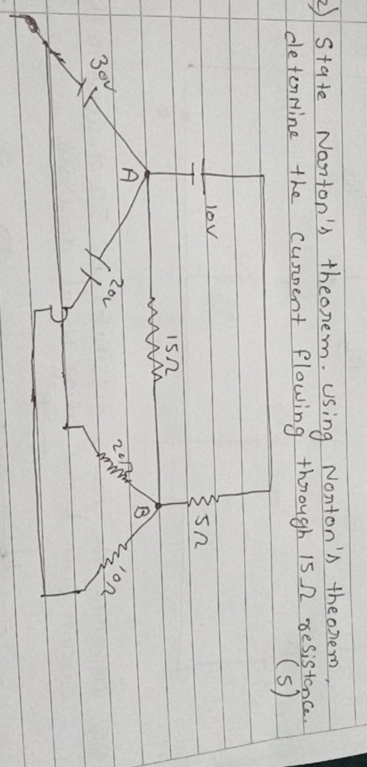 2) State Norton's theorem. Using Norton's theorem,
determine the current flowing through 15Ω resistance.
(5)
10V
30V
A
15Ω
5Ω
20
B
20Ω
10Ω